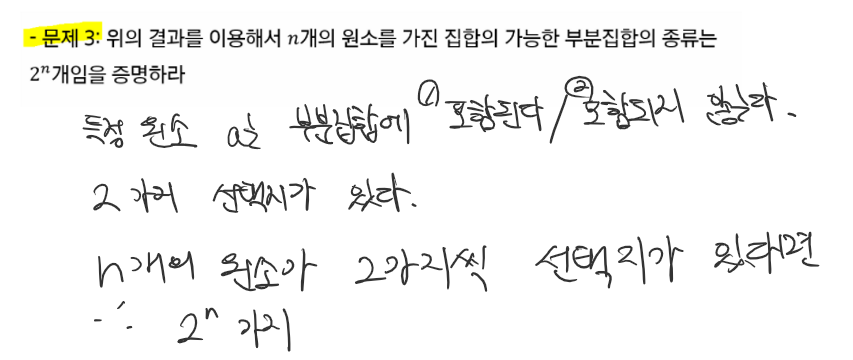 - 문제 3: 위의 결과를 이용해서 n개의 원소를 가진 집합의 가능한 부분집합의 종류는
2ⁿ개임을 증명하라
특정 원소 a는 부분집합에 ① 포함된다 / ② 포함되지 않는다.
2가지 선택지가 있다.
n개의 원소가 2가지씩 선택지가 있다면
∴ 2ⁿ가지